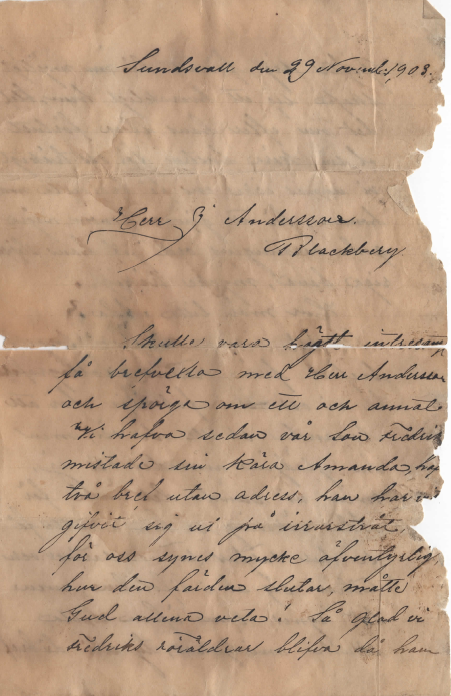 Sundsvall den 29 November 1903.
Herr J Andersson.
Blackbery
Skulle vara högst intressant
få brefvexla med Herr Andersson
och spörga om ett och annat
Vi hafva sedan vår Son Fredrik
mistade sin kära Amanda, haft
två bref utan adress, han har
gifvit sig ut på
för oss synes mycke äfventyrlig,
hur den färden slutar, måtte
Gud allena veta! Så glad vi
Fredriks föräldrar blifva då han